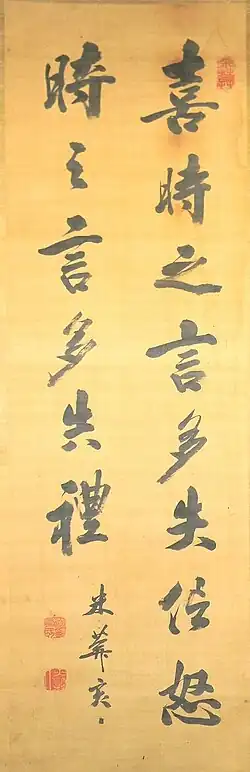 喜時之言多失信怒
時之言多失禮
米葊亥